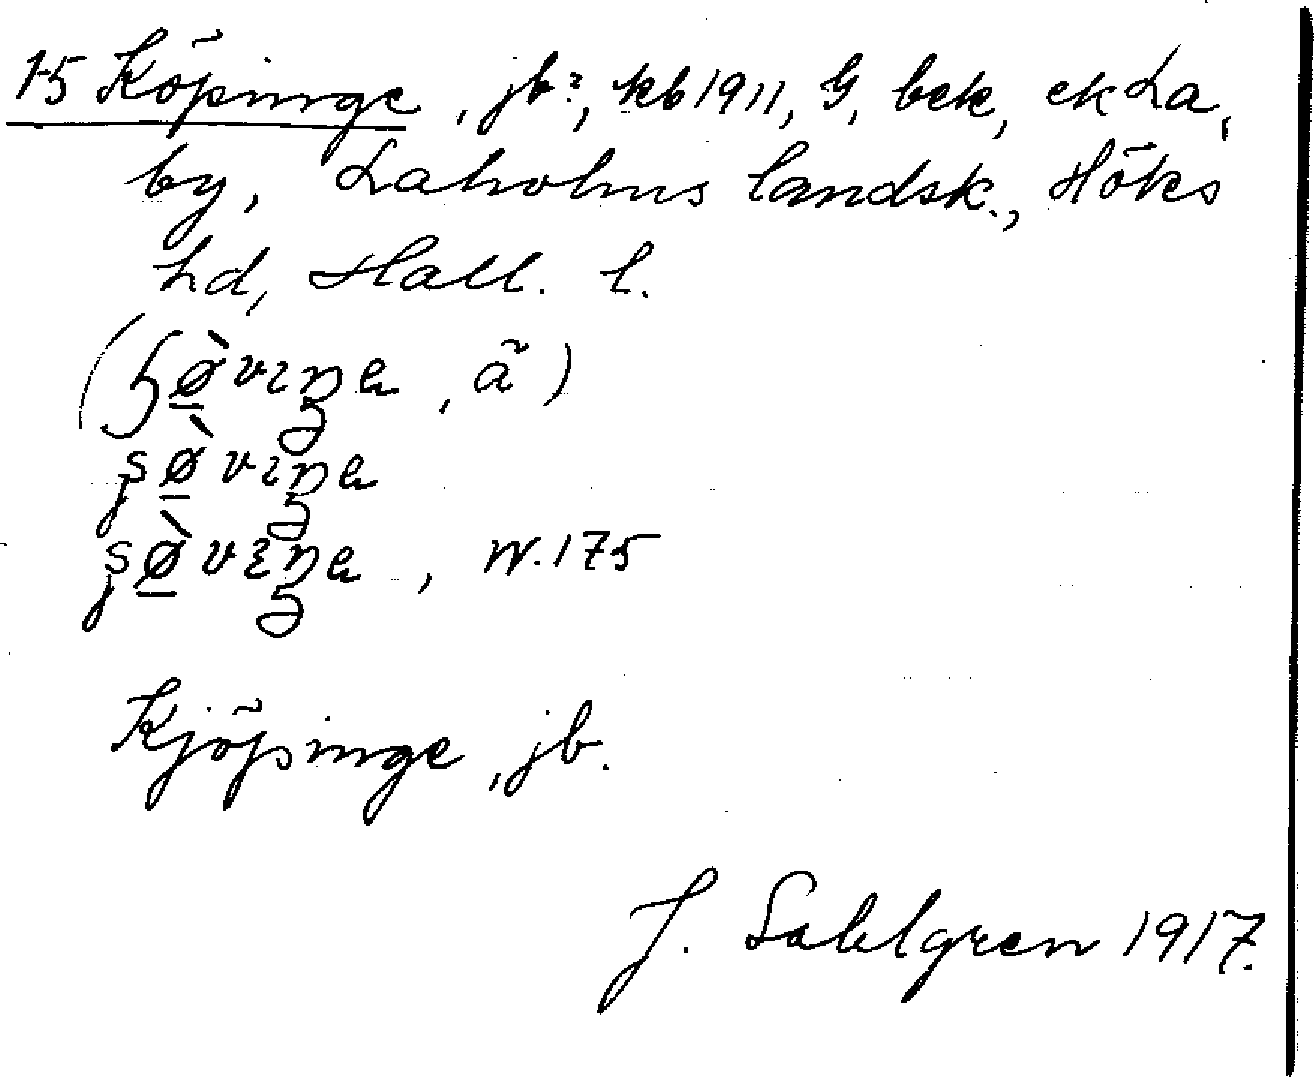 15 Köpinge, jb?, kb 1911, G, bek, ek La,
by, Laholms landsk., Höks
hd, Hall. l.
, ã)
, N. 175
Kjöpinge, jb.
J. Sahlgren 1917.